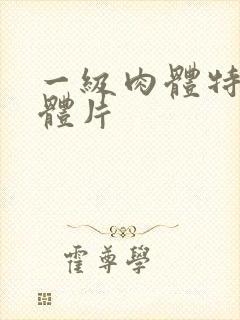 一級肉體特
體片
霍尊學